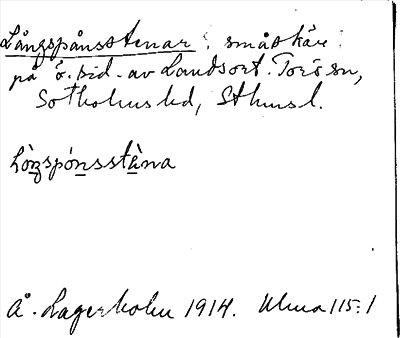 Långspånsstenar: småskär
på ö. sid. av Landsort. Torö sn,
Sotholms hd, Sthmsl.
Lòngspónsstàna
Å. Lagerholm 1914. Ulma 115:1